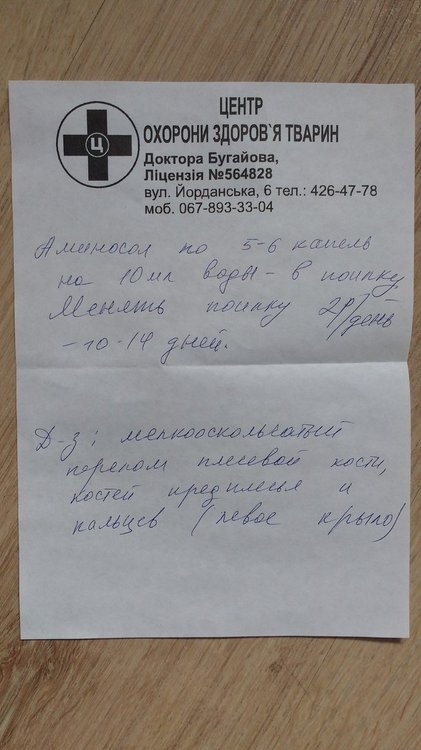 Ц
ЦЕНТР
ОХОРОНИ ЗДОРОВ`Я ТВАРИН
Доктора Бугайова,
Ліцензія №564828
вул. Йорданська, 6 тел.: 426-47-78
моб. 067-893-33-04
Аминосол по 5-6 капель
на 10 мл воды - в поилку.
Менять поилку 2р/день
- 10-14 дней.
Д-з: мелкооскольчатый
перелом плечевой кости,
костей предплечья и
пальцев (левое крыло)